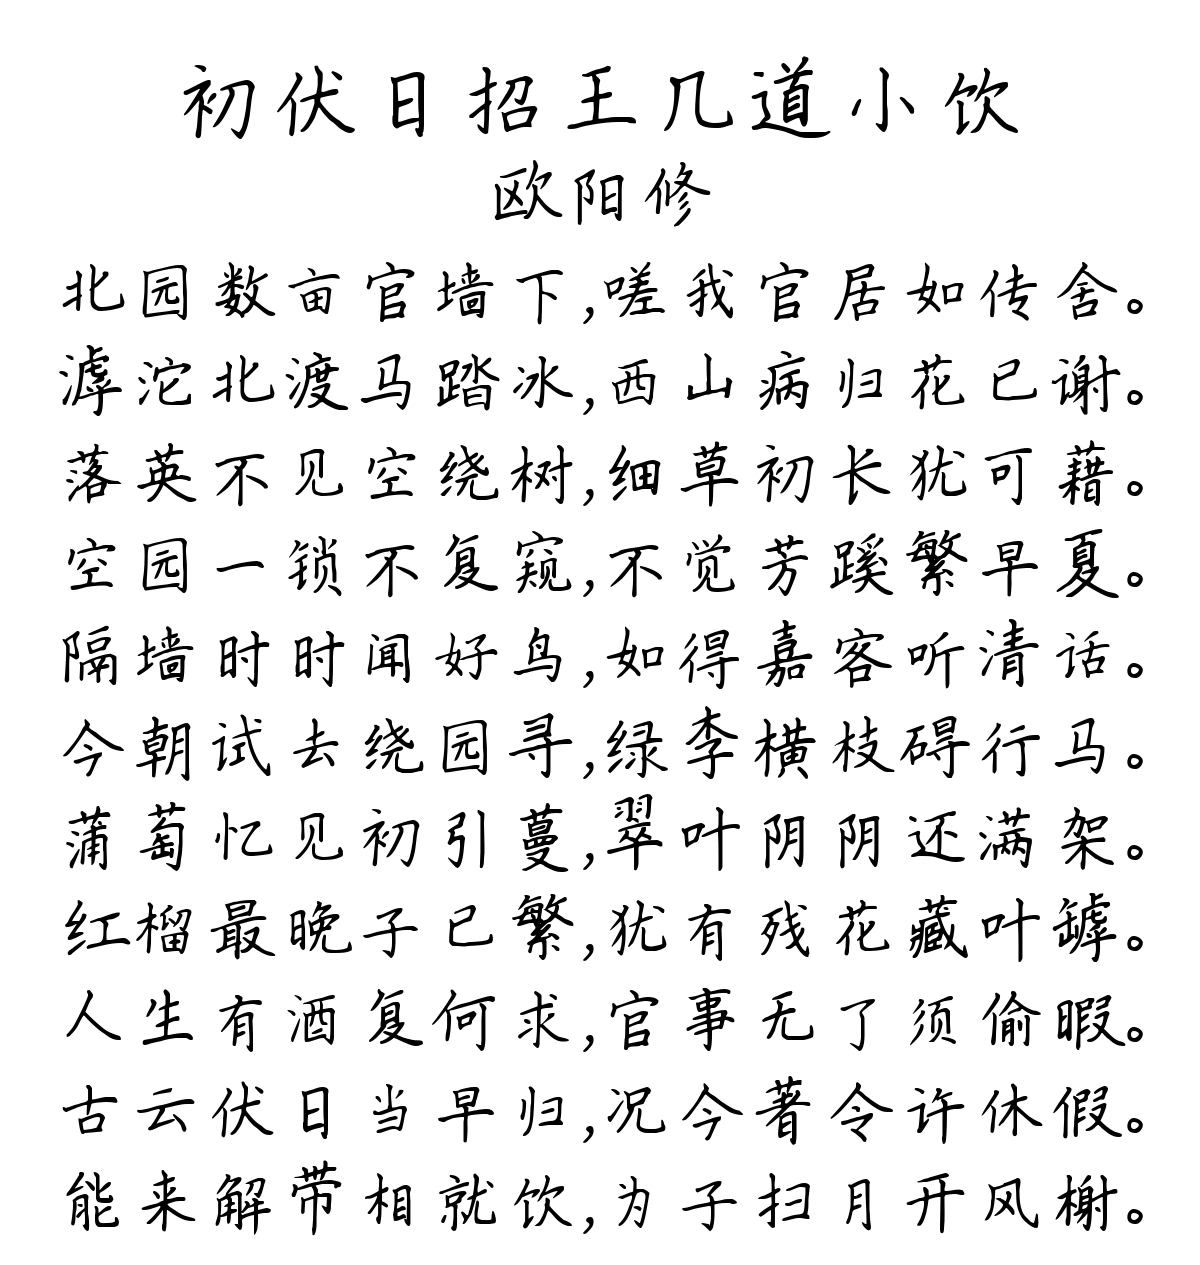 初伏日招王几道小饮
欧阳修
北园数亩官墙下,嗟我官居如传舍。
滹沱北渡马踏冰,西山病归花已谢。
落英不见空绕树,细草初长犹可藉。
空园一锁不复窥,不觉芳蹊繁早夏。
隔墙时时闻好鸟,如得嘉客听清话。
今朝试去绕园寻,绿李横枝碍行马。
蒲萄忆见初引蔓,翠叶阴阴还满架。
红榴最晚子已繁,犹有残花藏叶罅。
人生有酒复何求,官事无了须偷暇。
古云伏日当早归,况今著令许休假。
能来解带相就饮,为子扫月开风榭。